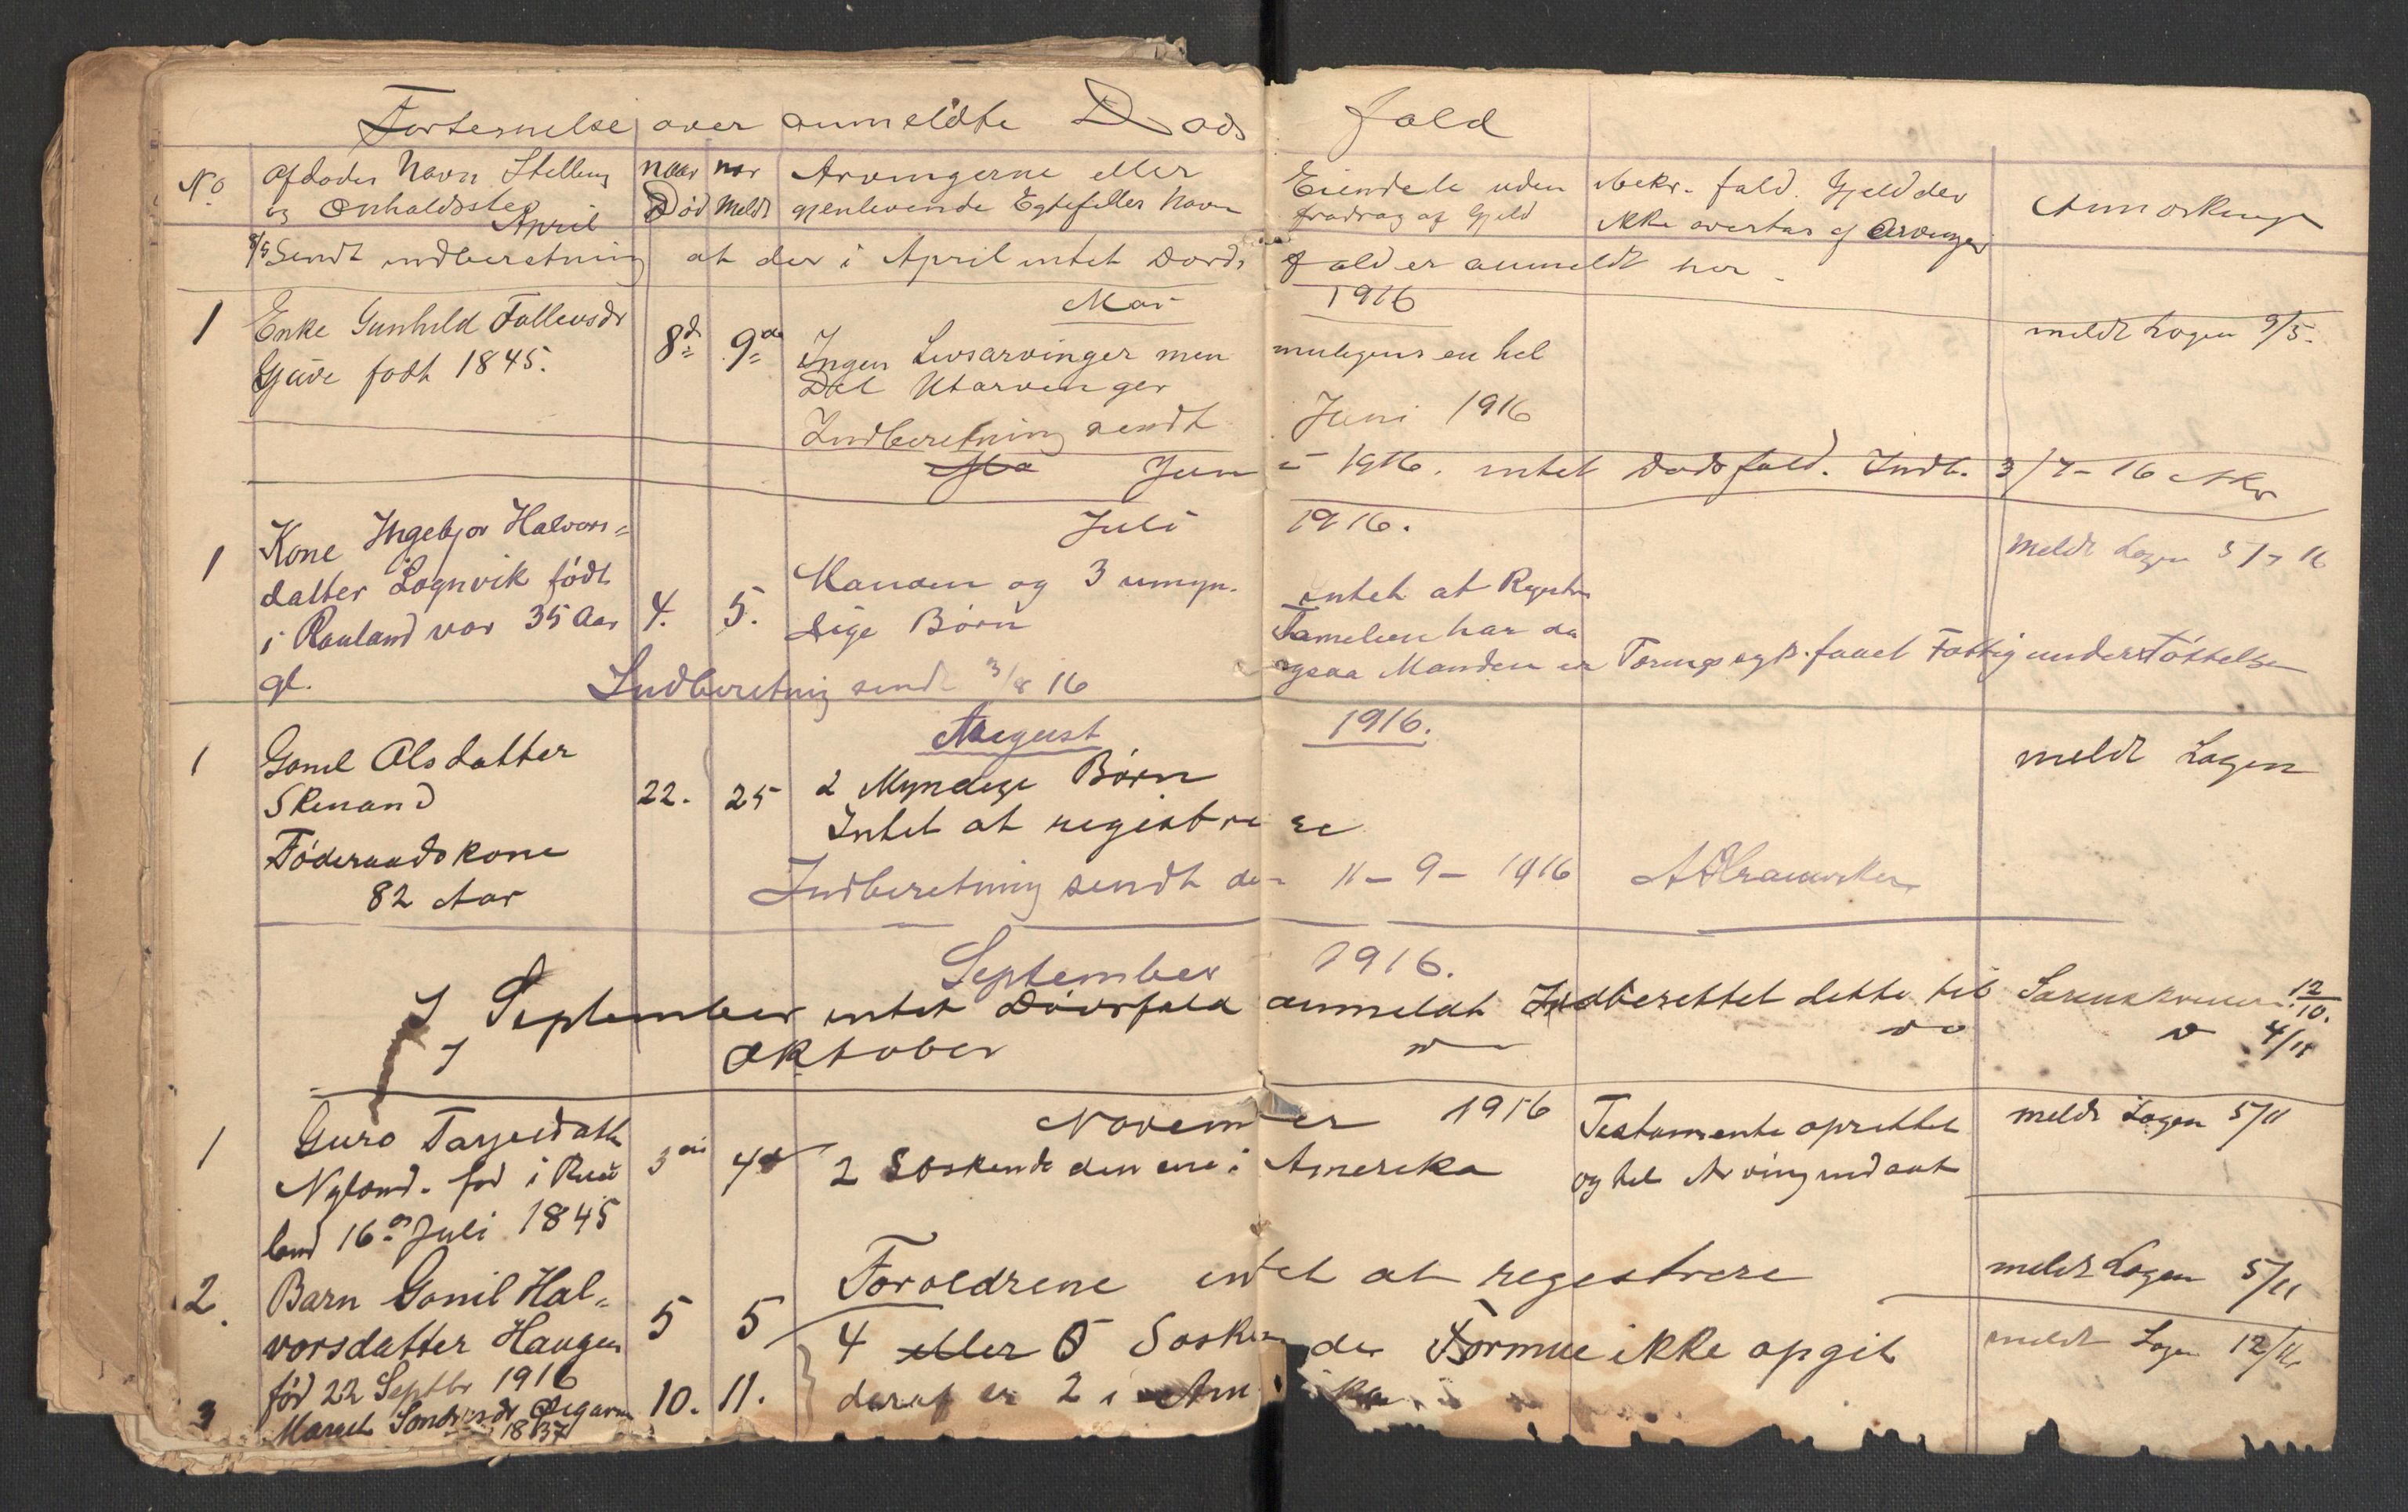 Fortegnelse over anmeldte Døds fald
No
Afdødes Navn Stilling
og Opholdssted
naar
Død
nar
Meldt
Arvingerne eller
gjenlevende Egtefelles Navn
Eiendele uden
fradrag af Gjeld
Bekr. fald. Gjeld der
ikke overtas af Arvinger
Anmerkning
April
8/5 Sendt indberetning at der i April intet Døds fald er anmeldt her -
Mai 1916
1
Enke Gunhild Tollevsdr
Gjuve født 1845.
8d
9de
Ingen Livsarvinger men muligens en hel
Del Utarvinger
meldt Logen 9/5.
Indberetning sendt Juni 1916
Juni 1916. intet Dødsfald. Indb. 3/7-16
Juli 1916.
1
Kone Ingebjor Halvors=
datter Lognvik født
i Rauland var 35 Aar
gl.
4.
5.
Manden og 3 umyn.
dige Børn
intet at Registr
Familien har da
ogsaa Manden er faaet Fattigunderstøttelse
meldt Logen 5/7 16
Indberetning sendt 3/8 16
August 1916.
1
Gonil Olsdatter
Skinand
Føderaadskone
82 Aar
22.
25
2 Myndige Børn
Intet at registrere
meldt Logen
Indberetning sendt den 11-9-1916
September 1916.
I September intet Dødsfald anmeldt Indberettet dette til Sorenskriveren 12/10.
I Oktober do do 4/11
November 1916
1
Guro Tarjeidatt
Nyland. fød i Rau
land 16de Juli 1845
3die
4d
2 Søskende den ene i Amerika
Testamente oprettet
og hel Arving indsat
meldt Logen 5/11
2.
Barn Gonil Hal=
vorsdatter Haugen
fød 22 Septbr 1916
5
5
Foreldrene intet at registrere
meldt Logen 5/11
3
Margit Sondresdr
1837
10.
11.
4 eller 5 Søskende Formue ikke opgit
deraf er 2 i Amerika
meldt Logen 12/11